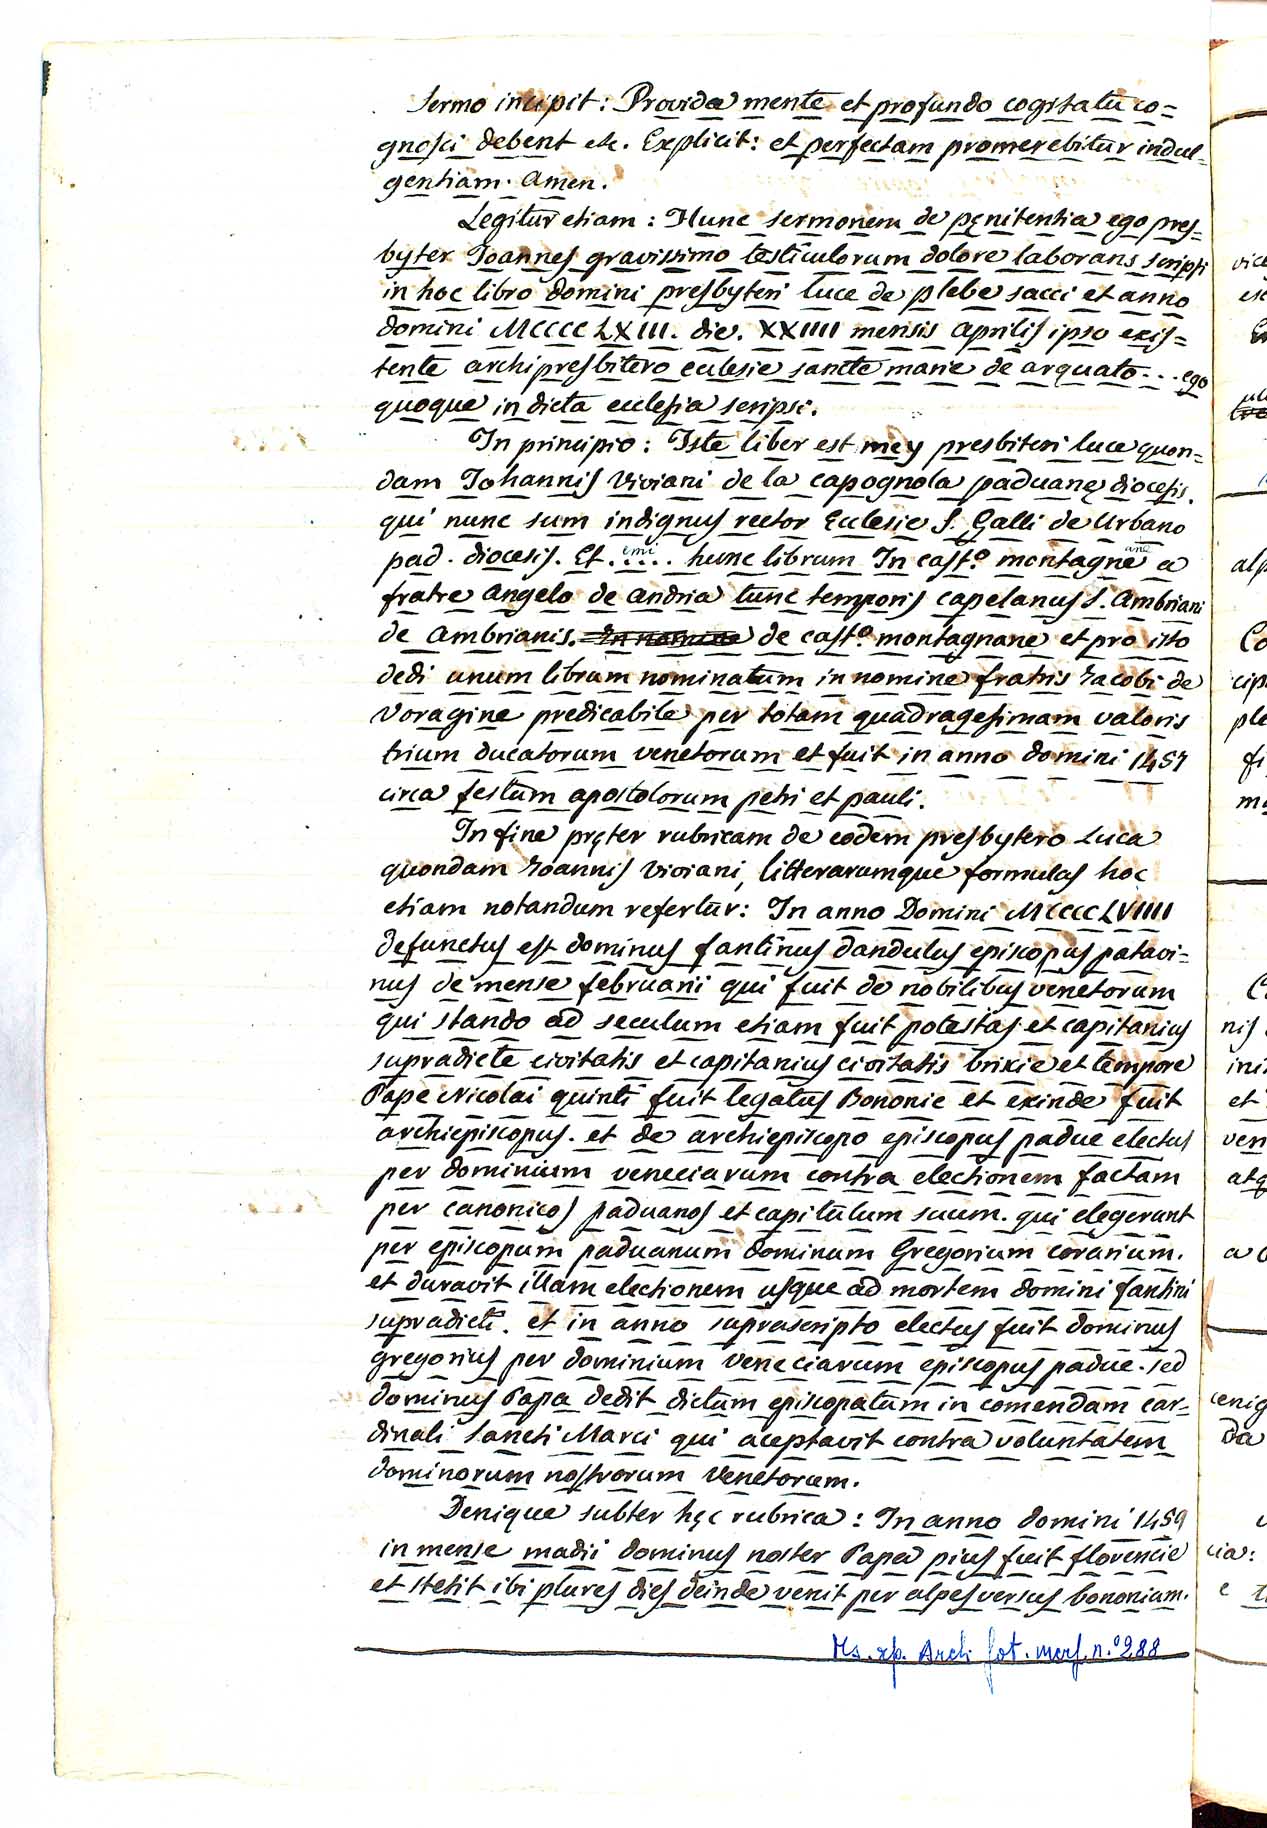 Sermo incipit: Provida mente et profundo cogitatu co=
gnosci debent etc. Explicit: et perfectam promerebitur indul=
gentiam. Amen.
Legitur etiam: Hunc sermonem de pęnitentia ego pres=
byter Joannes gravissimo testiculorum dolore laborans scripsi
in hoc libro domini presbyteri luce de plebe sacci et anno
domini MCCCCLXIII. die. XXIIII mensis aprilis ipso exis=
tente archipresbitero eclesie sancte marie de arquato... ego
quoque in dicta ecclesia scripsi.
In principio: Iste liber est mey presbiteri luce quon=
dam Johannis Viviani de la capognola paduanę diocesis.
qui nunc sum indignus rector Eclesie S. Galli de Urbano
pad. diocesis. Et .emi... hunc librum In cast.º montagnane a
fratre Angelo de andria tunc temporis capelanus S. Ambriani
de Ambrianis. In nomine de cast.º montagnane et pro isto
dedi unum librum nominatum in nomine fratris Jacobi de
Voragine predicabile per totam quadragesimam valoris
trium ducatorum venetorum et fuit in anno domini 1457
circa festum apostolorum petri et pauli.
In fine pręter rubricam de eodem presbytero Luca
quondam Joannis Viviani, litterarumque formulas hoc
etiam notandum refertur: In anno Domini MCCCCLVIIII
defunctus est dominus fantinus dandulus episcopus patavi=
nus de mense februarii qui fuit de nobilibus venetorum
qui stando ad seculum etiam fuit potestas et capitanius
supradicte civitatis et capitanius civitatis brixie et tempore
Pape Nicolai quinti fuit legatus Bononie et exinde fuit
archiepiscopus. et de archiepiscopo episcopus padue electus
per dominium veneciarum contra electionem factam
per canonicos paduanos et capitulum suum. qui elegerunt
per episcopum paduanum dominum Gregorium corarium.
et duravit illam electionem usque ad mortem domini fantini
supradicti. et in anno suprascripto electus fuit dominus
gregorius per dominium veneciarum episcopus padue. sed
dominus Papa dedit dictum episcopatum in comendam car=
dinali Sancti Marci qui aceptavit contra voluntatem
dominorum nostrorum Venetorum.
Denique subter hęc rubrica: In anno domini 1459
in mense madii dominus noster Papa pius fuit florencie
et stetit ibi plures dies deinde venit per alpes versus bononiam.
Ms. rp. Arch. fot. mers. n.º 288